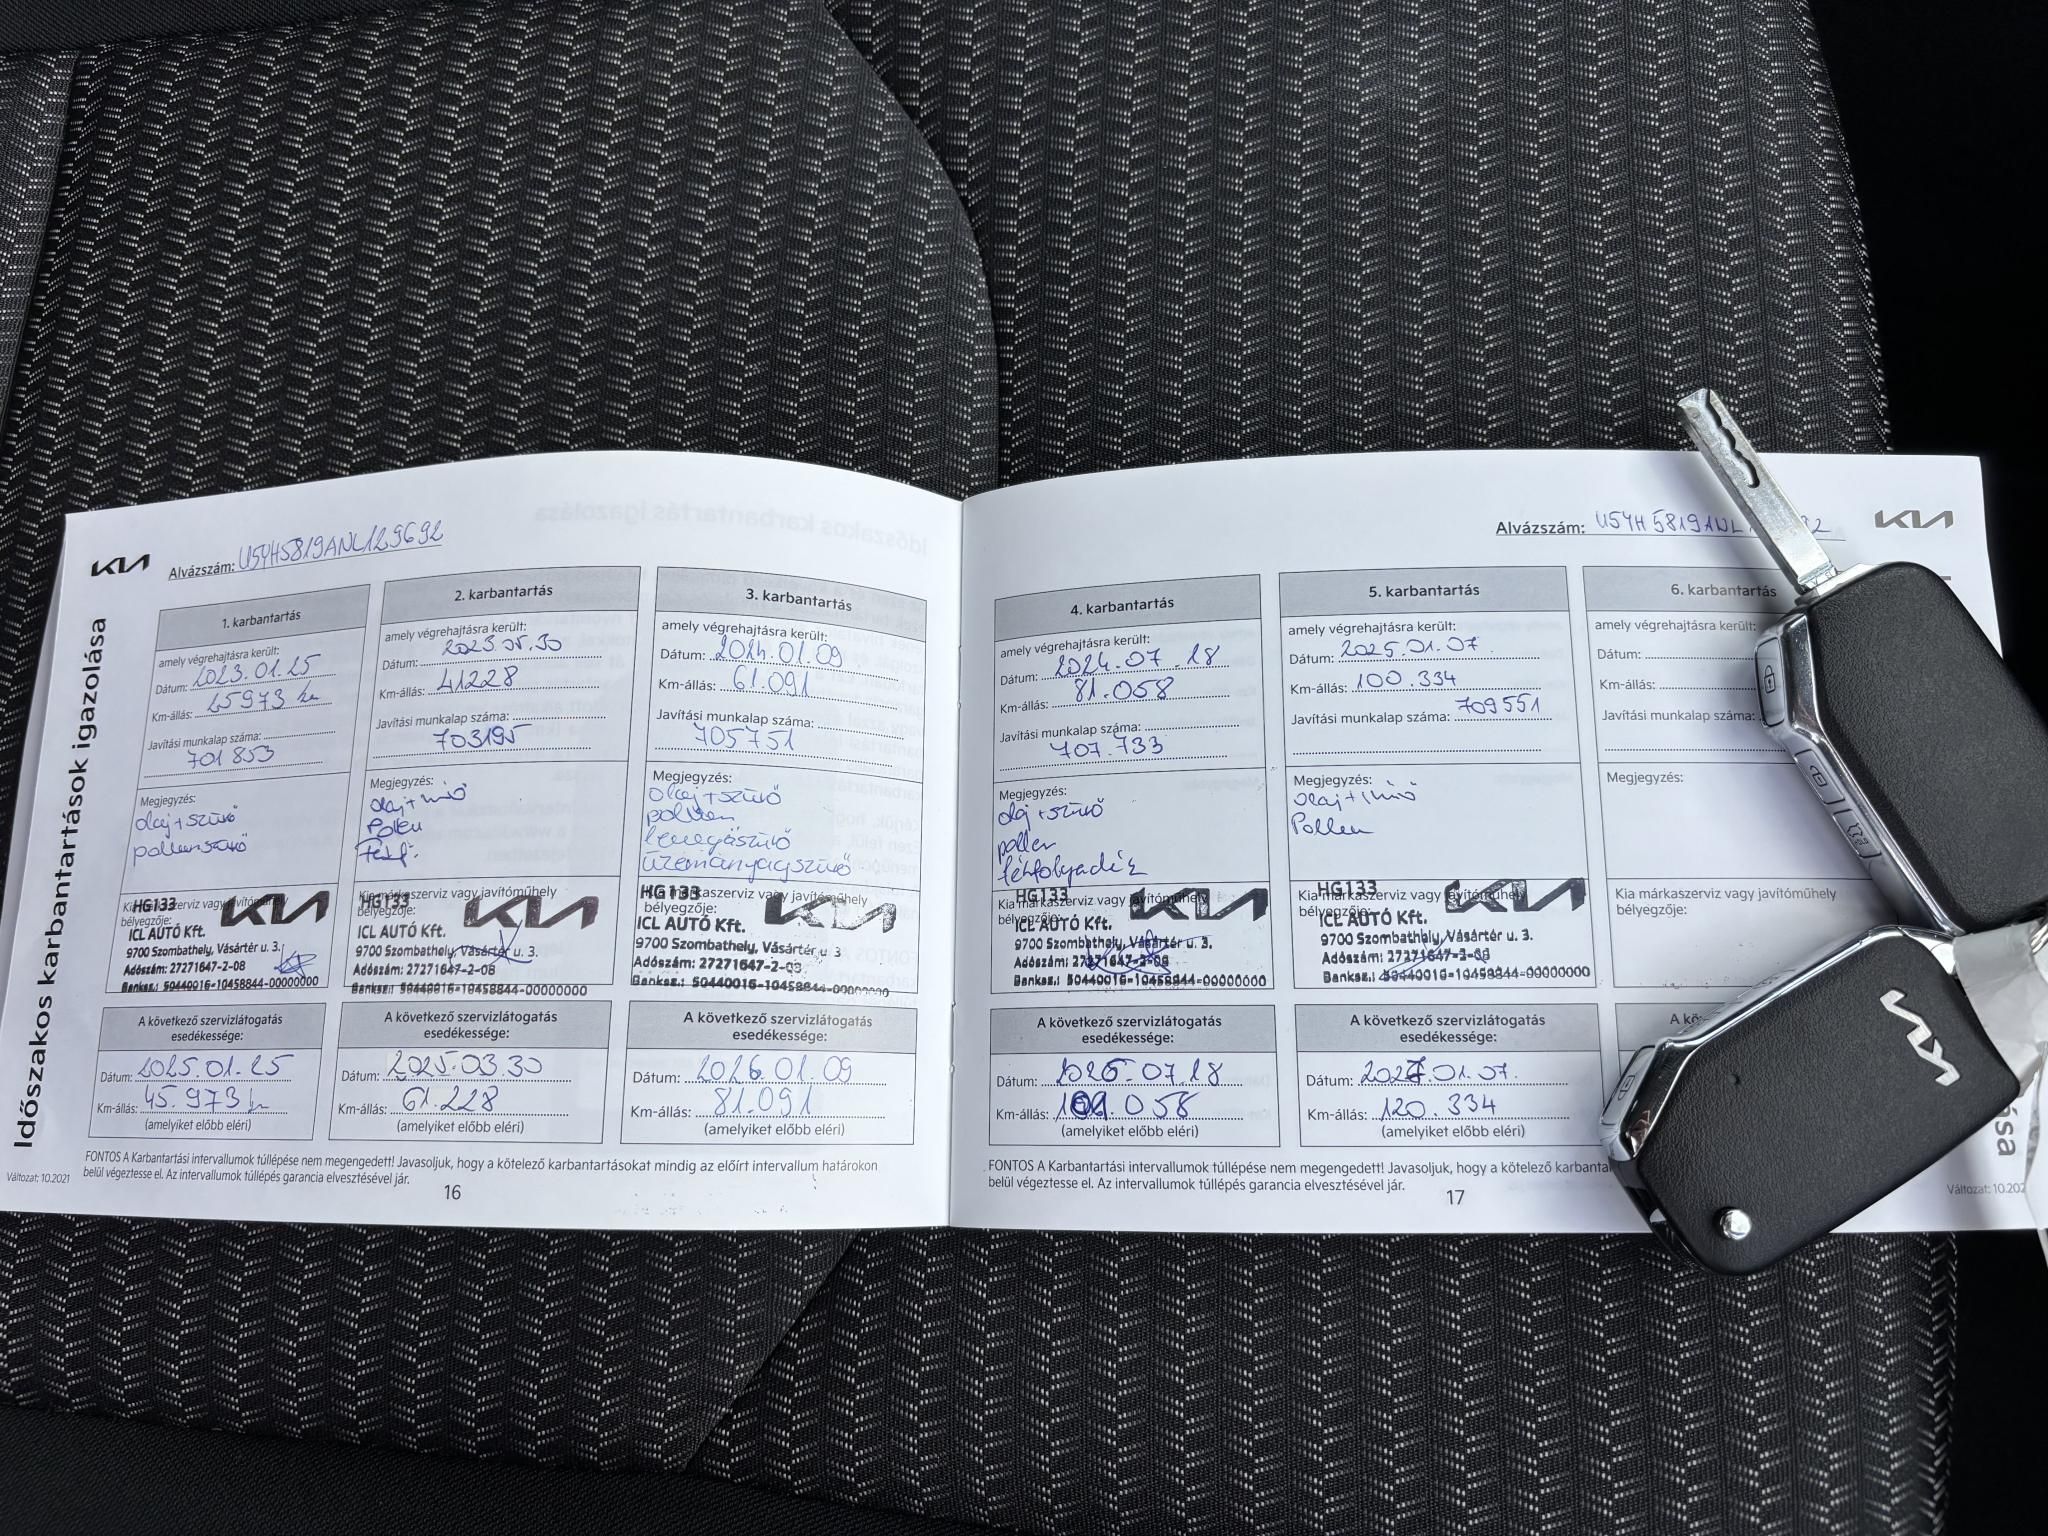 Időszakos karbantartások igazolása
KIA
Alvázszám: U5YH5819ANL129692
1. karbantartás
amely végrehajtásra került:
Dátum: 2023.01.25
Km-állás: 25973 km
Javítási munkalap száma:
701853
Megjegyzés:
olaj+szűrő
pollenszűrő
Kia márkaszerviz vagy javítóműhely
bélyegzője:
HG133
KIA
ICL AUTÓ Kft.
9700 Szombathely, Vásártér u. 3.
Adószám: 27271647-2-08
Banksz.: 50440016-10458844-00000000
A következő szervizlátogatás
esedékessége:
Dátum: 2025.01.25
Km-állás: 45.973 km
2. karbantartás
amely végrehajtásra került:
Dátum: 2023.05.30
Km-állás: 41228
Javítási munkalap száma:
703195
Megjegyzés:
Pollen
Kia márkaszerviz vagy javítóműhely
bélyegzője:
HG133
KIA
ICL AUTÓ Kft.
9700 Szombathely, Vásártér u. 3.
Adószám: 27271647-2-08
Banksz.: 50440016-10458844-00000000
A következő szervizlátogatás
esedékessége:
Dátum: 2025.03.30
Km-állás: 61.228
(amelyiket előbb eléri)
3. karbantartás
amely végrehajtásra került:
Dátum: 2024.01.09
Km-állás: 61.091
Javítási munkalap száma:
705751
Megjegyzés:
olaj+szűrő
pollen
levegőszűrő
üzemanyagszűrő
Kia márkaszerviz vagy javítóműhely
bélyegzője:
HG133
KIA
ICL AUTÓ Kft.
9700 Szombathely, Vásártér u. 3
Adószám: 27271647-2-08
Banksz.: 50440016-10458844-00000000
A következő szervizlátogatás
esedékessége:
Dátum: 2026.01.09
Km-állás: 81.091
(amelyiket előbb eléri)
FONTOS A Karbantartási intervallumok túllépése nem megengedett! Javasoljuk, hogy a kötelező karbantartásokat mindig az előírt intervallum határokon
belül végeztesse el. Az intervallumok túllépés garancia elvesztésével jár.
Változat: 10.2021
16
Alvázszám: U5YH5819ANL 92
KIA
4. karbantartás
amely végrehajtásra került:
Dátum: 2024.07.18
Km-állás: 81.058
Javítási munkalap száma:
707.733
Megjegyzés:
olaj+szűrő
pollen
fékfolyadék
Kia márkaszerviz vagy javítóműhely
bélyegzője:
HG133
KIA
ICL AUTÓ Kft.
9700 Szombathely, Vásártér u. 3.
Adószám: 27271647-2-08
Banksz.: 50440016-10458844-00000000
A következő szervizlátogatás
esedékessége:
Dátum: 2026.07.18
Km-állás: 101.058
(amelyiket előbb eléri)
5. karbantartás
amely végrehajtásra került:
Dátum: 2025.01.07.
Km-állás: 100.334
Javítási munkalap száma: 709551
Megjegyzés:
Pollen
Kia márkaszerviz vagy javítóműhely
bélyegzője:
HG133
KIA
ICL AUTÓ Kft.
9700 Szombathely, Vásártér u. 3.
Adószám: 27271647-2-08
Banksz.: 50440016-10458844-00000000
A következő szervizlátogatás
esedékessége:
Dátum: 2027.01.07.
Km-állás: 120.334
(amelyiket előbb eléri)
6. karbantartás
amely végrehajtásra került:
Dátum:
Km-állás:
Javítási munkalap száma:
Megjegyzés:
Kia márkaszerviz vagy javítóműhely
bélyegzője:
FONTOS A Karbantartási intervallumok túllépése nem megengedett! Javasoljuk, hogy a kötelező karbanta
belül végeztesse el. Az intervallumok túllépés garancia elvesztésével jár.
17
Változat: 10.202
KIA